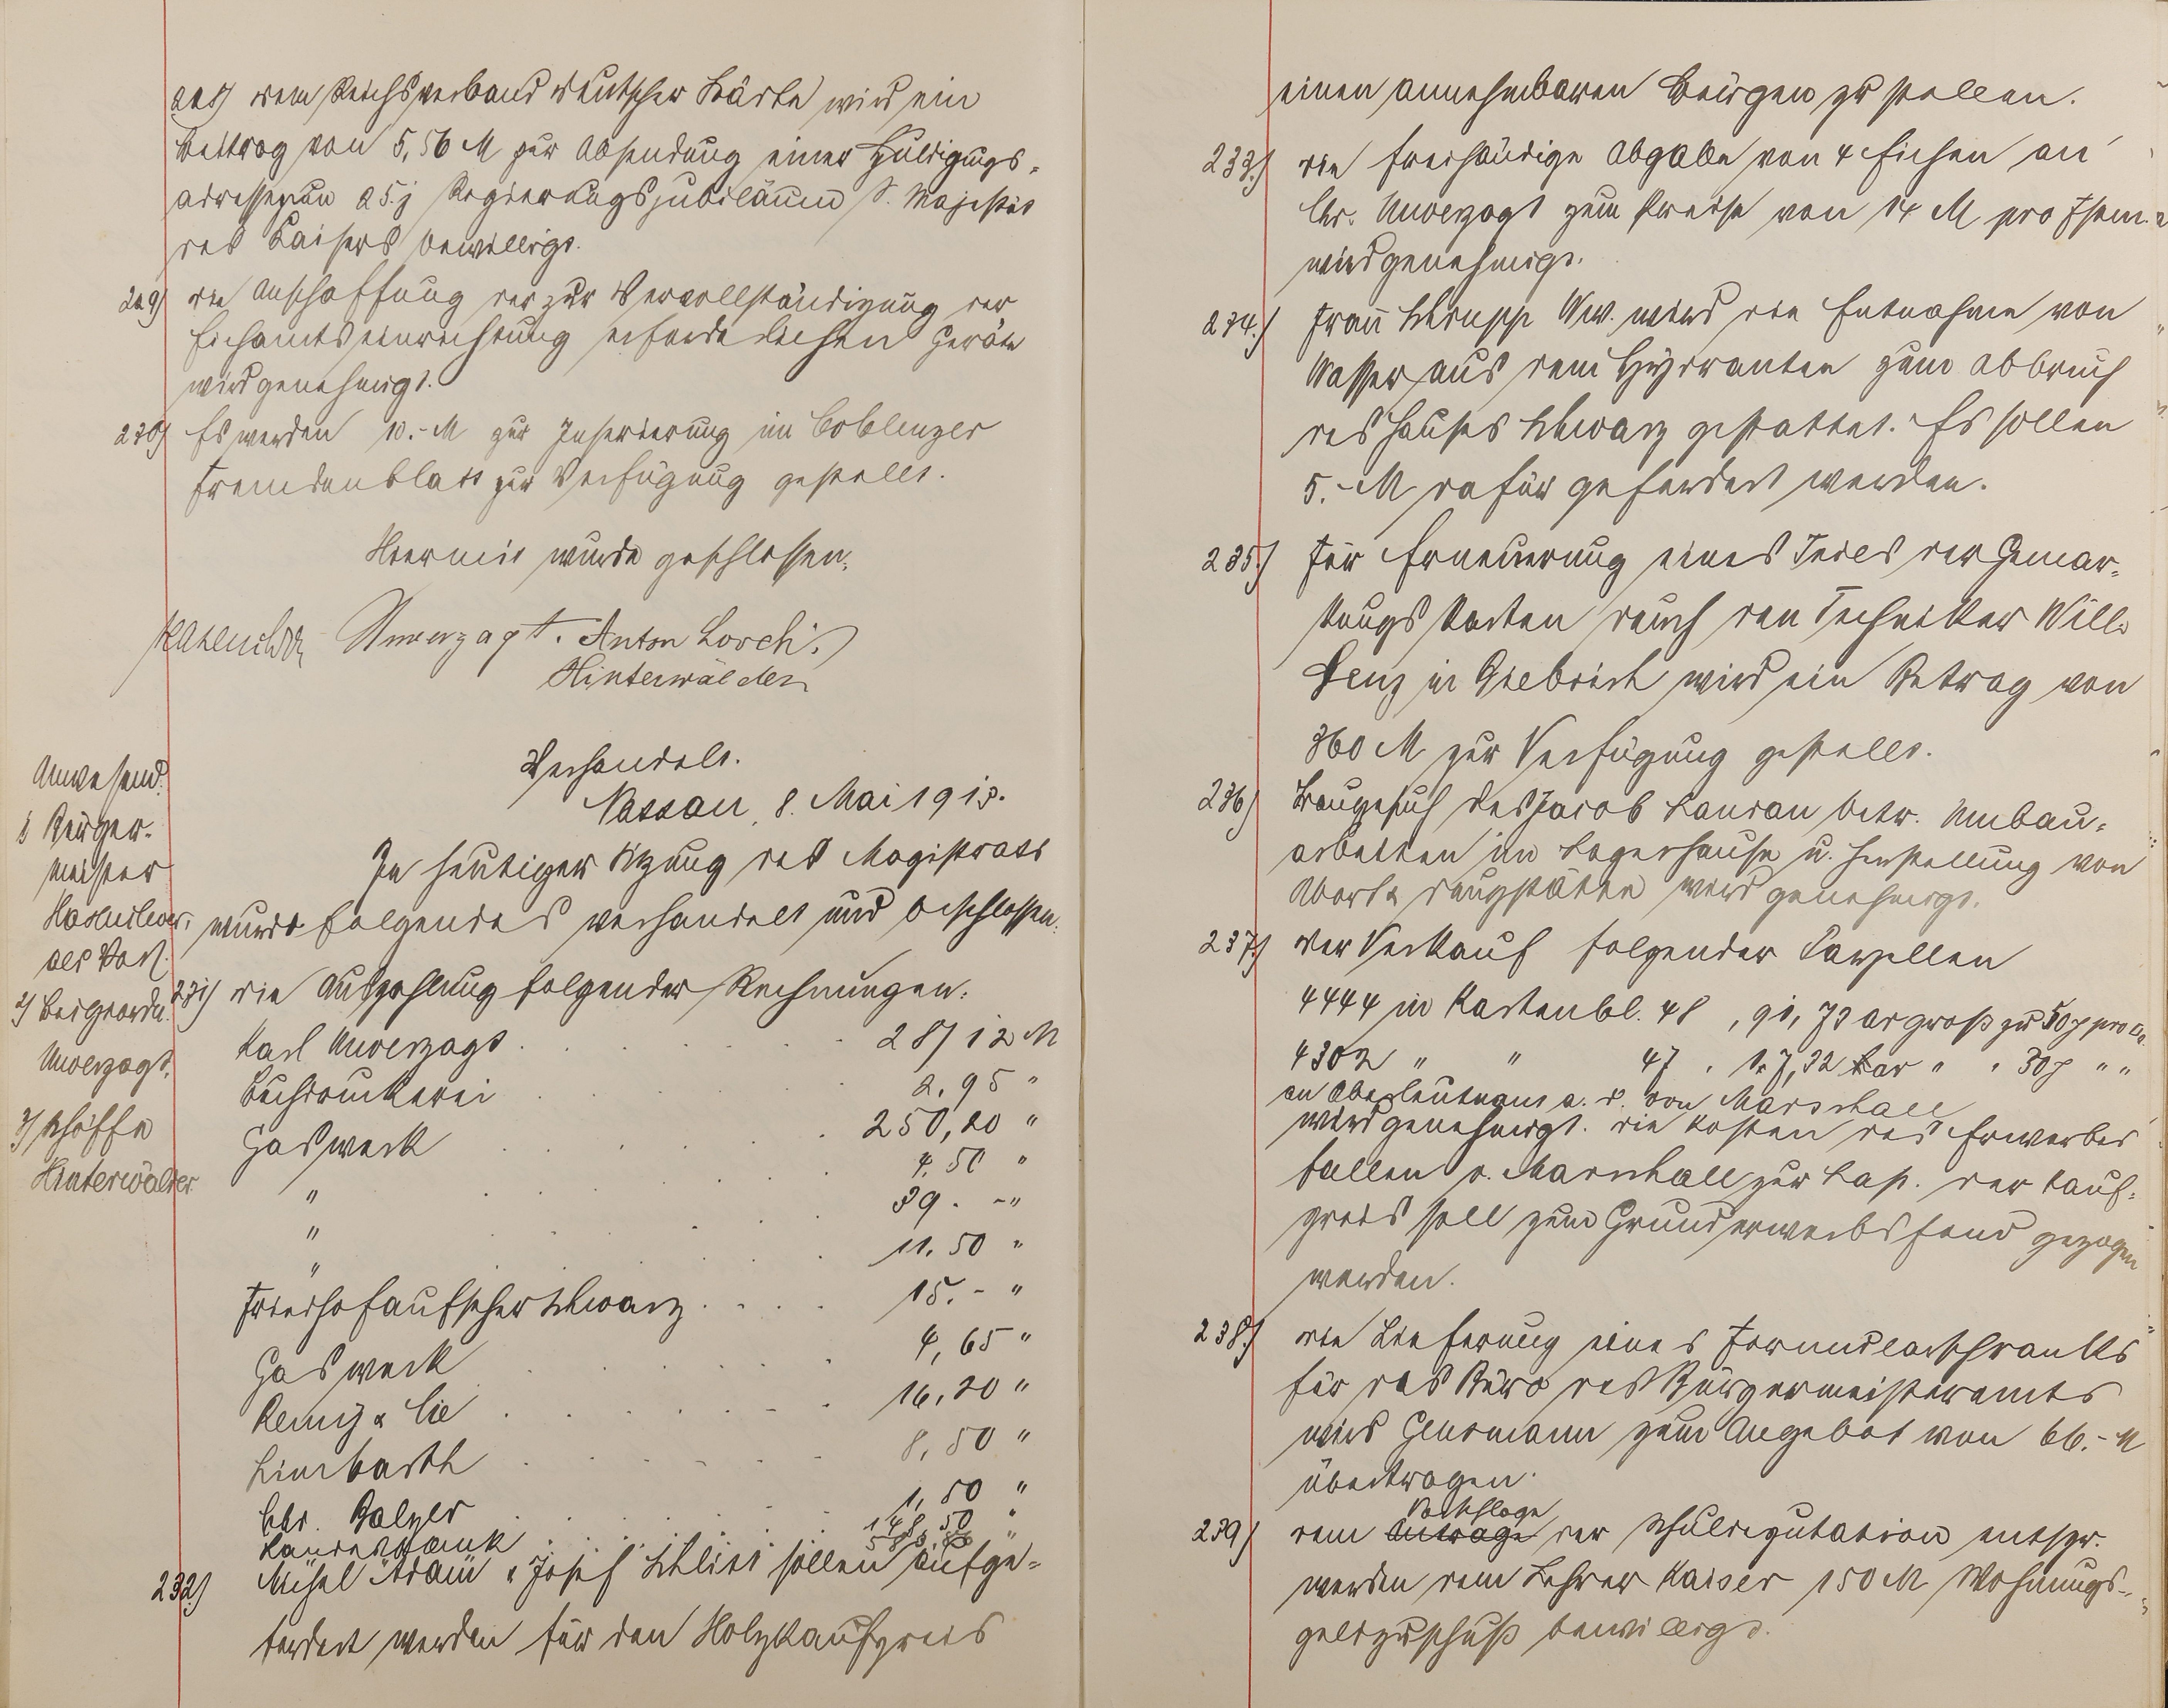 228) dem Reichsverband deutscher Städte wird ein
Beitrag von 5,56 M zur Absendung einer Huldigungs-
adresse zum 25j. Regierungsjubiläum S. Majestät
des Kaisers bewilligt.
229) die Anschaffung der zur Vervollständigung der
Eichamtseinrichtung erforderlichen Geräte
wird genehmigt.
230) Es werden 10.- M zur Inserierung im Coblenzer
Fremdenblatt zur Verfügung gestellt.
Hiermit wurde geschlossen.
Unverzagt. Anton Lorch.
Hinterwälder
Verhandelt.
Nassau, 8. Mai 1913.
Anwesend:
1) Bürger-
meister
als Vors.
2) Beigeordn.
Unverzagt.
3) Schöffe
Hinterwälder
In heutiger Sitzung des Magistrats
wurde folgendes verhandelt und beschlossen:
231) die Auszahlung folgender Rechnungen:
Karl Unverzagt . . . . 28,12 M
Buchdruckerei . . . 2,95 "
Gaswerk . . . . 250,20 "
" . . . . 4,50 "
" . . . . 39. - "
" . . . . 11.50 "
Friedhofaufseher Schwarz . . . . 15.- "
Gaswerk . . . . 4,65 "
Remy & Cie . . . . 16,20 "
Limbarth . . . . 8,50 "
Chr. Balzer . . . . 1,50 "
Landesbank . . . . 148,50 "
232.) Michel Adam & Josef Schlitt sollen aufge-
fordert werden für den Holzkaufpreis
einen annehmbaren Bürgen zu stellen.
233.) die freihändige Abgabe von 4 Eichen an
Chr. Unverzagt zum Preise von 14 M pro Fstm.
wird genehmigt.
234.) Frau Schrupp Ww. wird die Entnahme von
Wasser aus dem Hydranten zum Abbruch
des Hauses Schwarz gestattet. Es sollen
5.- M dafür gefordert werden.
235.) Für Erneuerung eines Teiles der Gemar-
kungskarten durch den Techniker Will.
Lenz in Biebrich wird ein Betrag von
360 M zur Verfügung gestellt.
236) Baugesuch des Jacob Landau betr. Umbau-
arbeiten im Lagerhause u. Herstellung von
Abort & Dungstätte wird genehmigt.
237.) der Verkauf folgender Parzellen
4444 in Kartenbl. 48, 91,73 ar groß zu 50 pro
4302 " " 47 . 1.7,32 ar " " 30 " "
an Oberleutnant a. d. von Marschall
wird genehmigt. die Kosten des Erwerbes
fallen v. Marschall zur Last. der Kauf-
preis soll zum Grunderwerbsfond gezogen
werden.
238.) die Lieferung eines Formularschrankes
für das Büro des Bürgermeisteramts
wird zum Angebot von 66.- M
übertragen.
239) dem Antrage Vorschlage der Schuldeputation entspr.
werden dem Lehrer Kaiser 150 M Wohnungs-
geldzuschuß bewilligt.